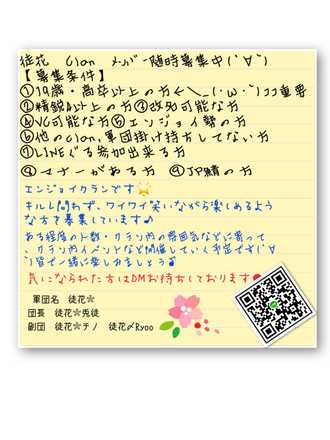 徒花 Clan メンバー随時募集中(´∀`)
【募集条件】
①19歳・高卒以上の方←＼_(・ω・`)ココ重要
②精鋭A以上の方③改名可能な方
④VC可能な方⑤エンジョイ勢の方
⑥他のClan,軍団掛け持ちしてない方
⑦LINEぐる参加出来る方
⑧マナーがある方 ⑨JP鯖の方
エンジョイクランです🌟
キルレ問わず、ワイワイ笑いながら楽しめるよう
な方を募集しています♪
ある程度の人数・クラン内の雰囲気などに寄って
、クラン内イベントなど開催していく予定です(´∀
`)皆で一緒に楽しみましょう
気になられた方はDMお待ちしております
軍団名 徒花✡
団長 徒花✡兎徒
副団 徒花✡チノ 徒花〆Ryoo